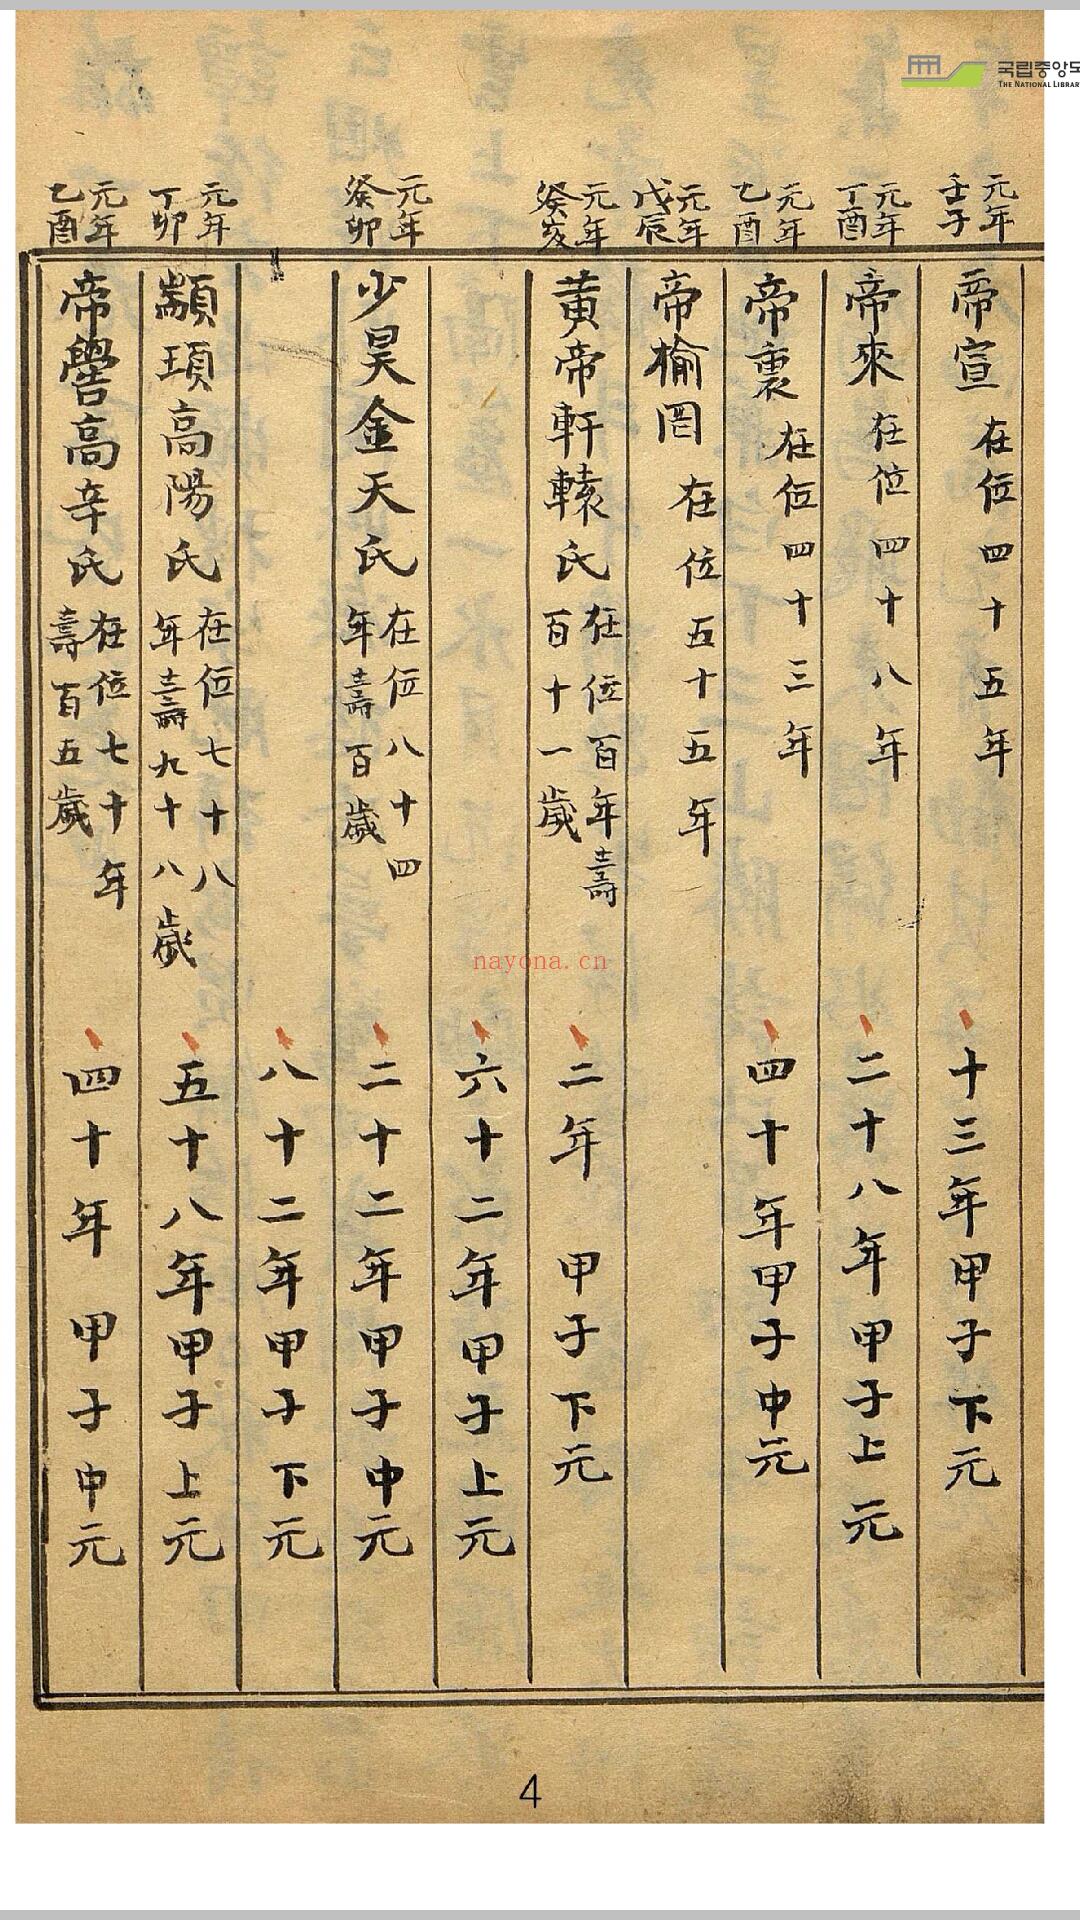 国립중앙도
THE NATIONAL LIBRARY
元年壬子
帝宣 在位四十五年 十三年甲子下元
元年丁酉
帝來 在位四十八年 二十八年甲子上元
元年乙酉
帝裏 在位四十三年 四十年甲子中元
元年戊辰
帝榆罔 在位五十五年
元年癸亥
黃帝軒轅氏 在位百年壽百十一歲 二年甲子下元
六十二年甲子上元
元年癸卯
少昊金天氏 在位八十四年壽百歲 二十二年甲子中元
八十二年甲子下元
元年丁卯
顓頊高陽氏 在位七十八年壽九十八歲 五十八年甲子上元
元年乙酉
帝嚳高辛氏 在位七十年壽百五歲 四十年甲子中元
nayona.cn
4